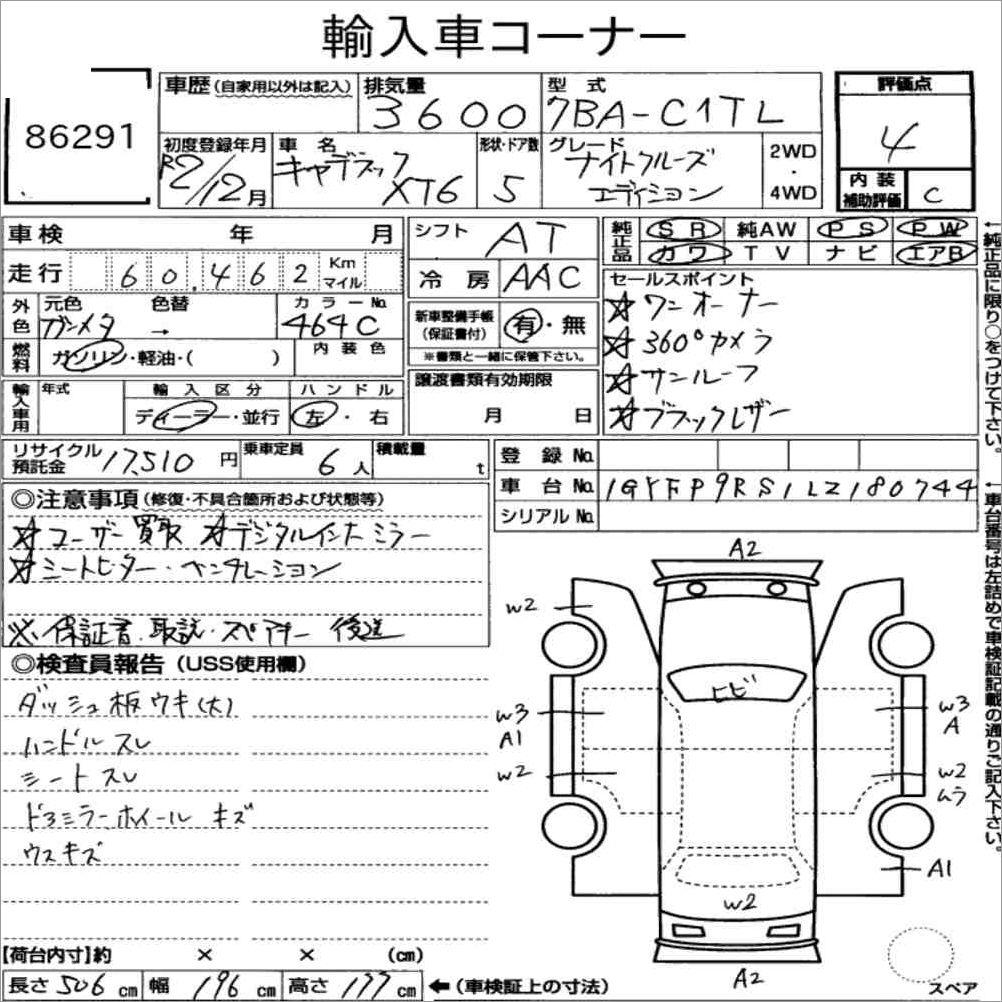 輸入車コーナー
86291
車歴 (自家用以外は記入) 排気量 3600 型式 7BA-C1TL 評価点 4
初度登録年月 R2/12月 車名 キャデラック XT6 形状・ドア数 5 グレード ナイトクルーズ エディション 2WD ・ 4WD
内装補助評価 C
車検 年 月
走行 60,462 Km マイル
シフト AT
冷房 AAC
純正品 SR 純AW PS PW
カワ TV ナビ エアB
外色 元色 ガンメタ → 色替 カラーNo. 464C
燃料 ガソリン・軽油・( ) 内装色
新車整備手帳(保証書付) 有・無
※書類と一緒に保管下さい。
セールスポイント
☆ワンオーナー
☆360°カメラ
☆サンルーフ
☆ブラックレザー
輸入車用 年式 輸入区分 ディーラー・並行 ハンドル 左・右
譲渡書類有効期限
月 日
リサイクル預託金 17,510円 乗車定員 6人 積載量 t
登録No.
車台No. 1GYFP9RS1LZ180744
シリアルNo.
◎注意事項 (修復・不具合箇所および状態等)
☆ユーザー買取 ☆デジタルインナーミラー
☆シートヒーター・ベンチレーション
※保証書・取説・スペアキー 後送
◎検査員報告 (USS使用欄)
ダッシュ板ウキ(大)
ハンドルスレ
シートスレ
ドアミラーホイール キズ
ウスキズ
A2
W2
ヒビ
W3
A1
W2
W3
A
W2
ムラ
A1
W2
A2
スペア
【荷台内寸】約 × × (cm)
長さ 506 cm 幅 196 cm 高さ 177 cm ←(車検証上の寸法)
←純正品に限り○をつけて下さい。
←車台番号は左詰めで車検証記載の通りご記入下さい。